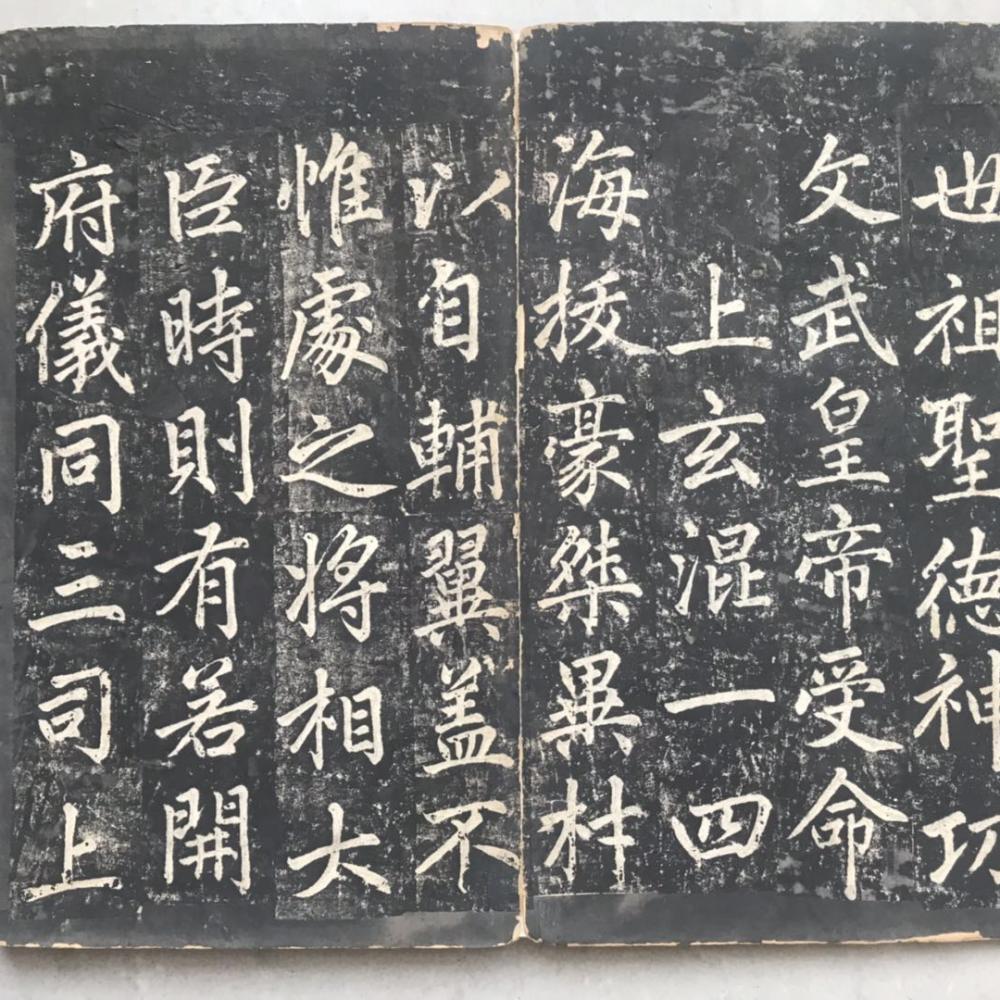 世祖聖德神功
文武皇帝受命
上玄混一四
海拔豪桀異材
以自輔翼蓋不
惟處之將相大
臣時則有若開
府儀同三司上